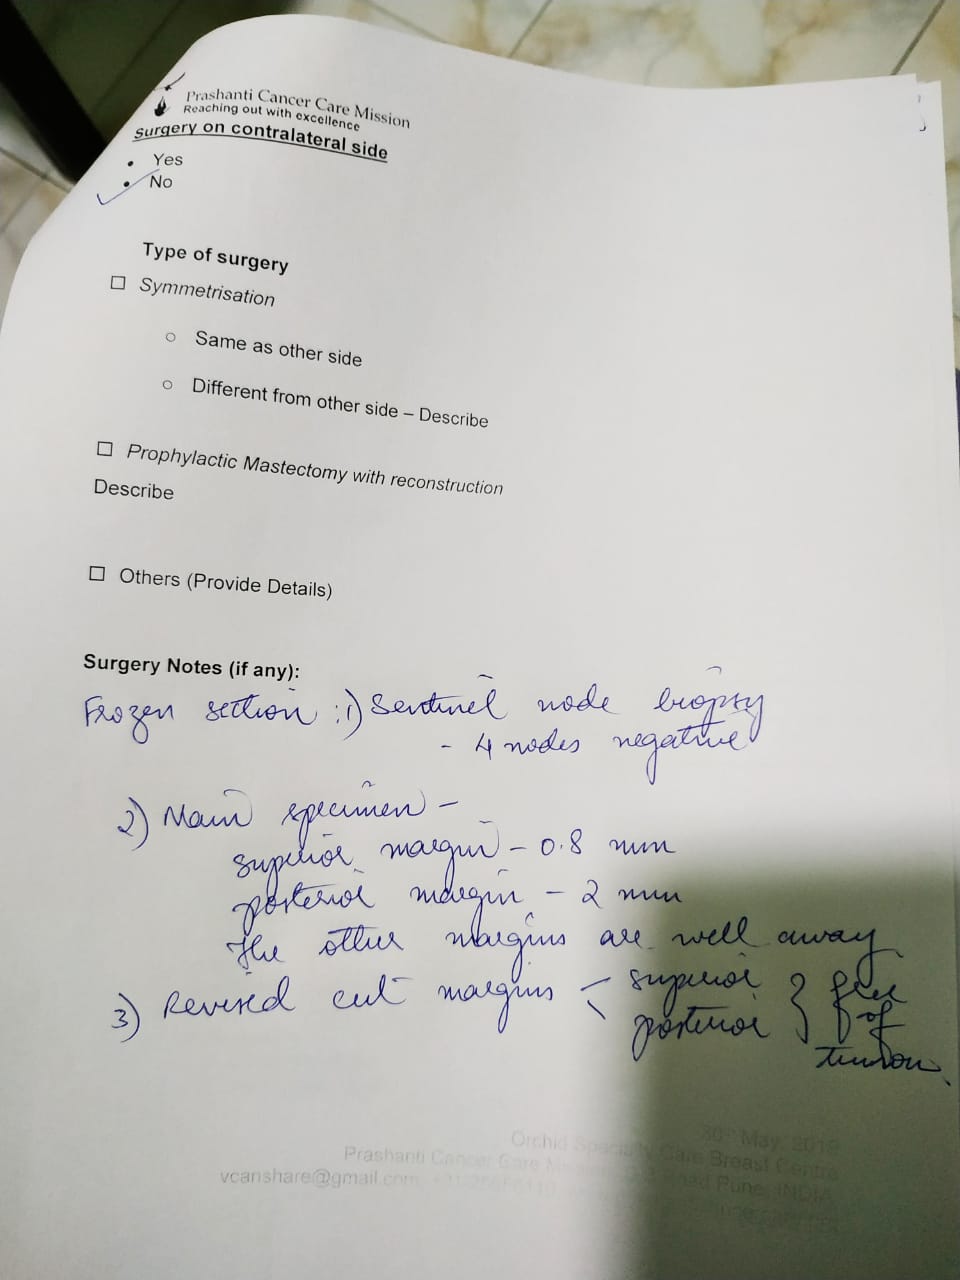 Prashanti Cancer Care Mission
Reaching out with excellence
Surgery on contralateral side
• Yes
• No
Type of surgery
☐ Symmetrisation
○ Same as other side
○ Different from other side – Describe
☐ Prophylactic Mastectomy with reconstruction
Describe
☐ Others (Provide Details)
Surgery Notes (if any):
Frozen section : 1) Sentinel node biopsy
- 4 nodes negative
2) Main specimen –
superior margin – 0.8 mm
posterior margin – 2 mm
The other margins are well away
3) Revised cut margins < superior
posterior } free of
30th May, 2019
Orchid Specialty Care Breast Centre
Prashanti Cancer Care
Pune, INDIA
vcanshare@gmail.com